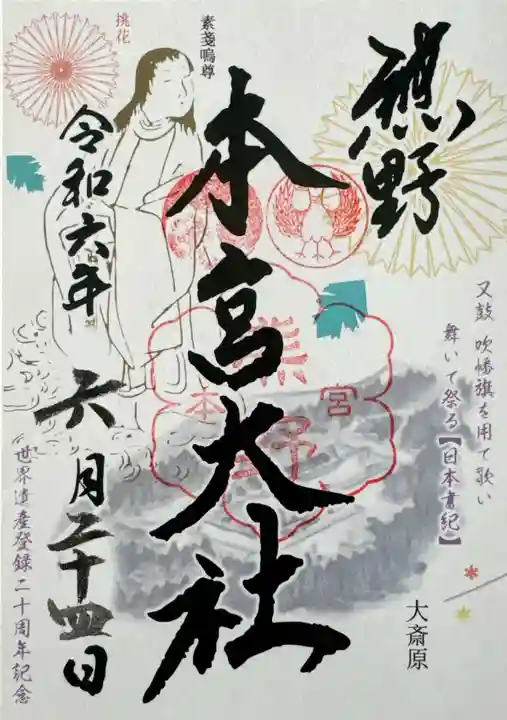 熊野
本宮大社
令和六年
六月二十四日
挑花
素戔嗚尊
又鼓 吹幡旗を用て歌い
舞いて祭る【日本書紀】
大斎原
世界遺産登録二十周年記念
熊野
本宮